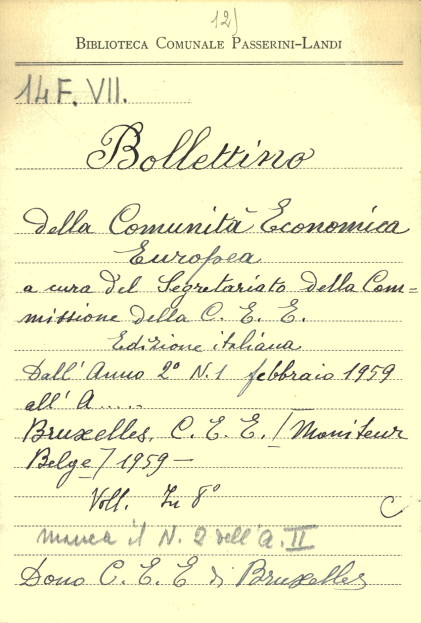 12)
BIBLIOTECA COMUNALE PASSERINI-LANDI
14 F. VII.
Bollettino
della Comunità Economica
Europea
a cura del Segretariato della Com=
missione della C. E. E.
Edizione italiana
Dall' Anno 2° N. 1 febbraio 1959
all' A.....
Bruxelles, C. E. E. / Moniteur
Belge / 1959 —
Voll. In 8°
C
manca il N. 2 dell' A. II
Dono C. E. E di Bruxelles